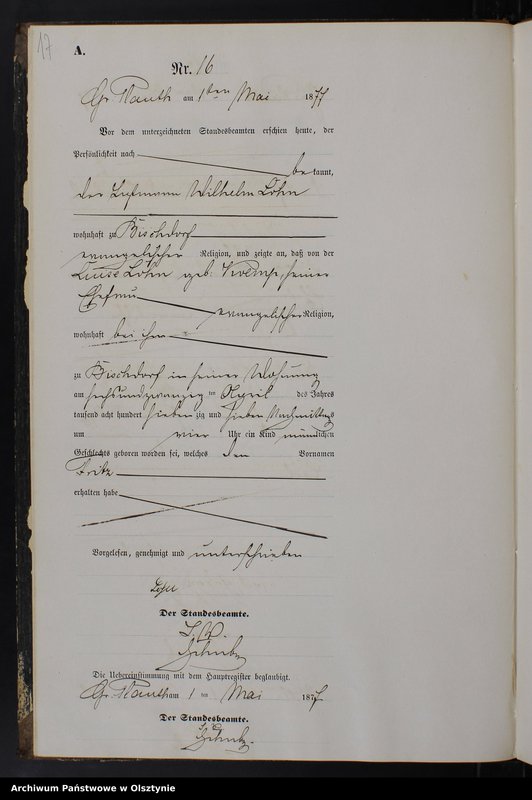 17
A.
Nr. 16
am 1ten Mai 1877
Vor dem unterzeichneten Standesbeamten erschien heute, der
Persönlichkeit nach
bekannt,
der Wilhelm
wohnhaft zu Bischdorf
evangelischer Religion, und zeigte an, daß von der
Luise geb. seiner
Ehefrau
evangelischer Religion,
wohnhaft bei ihm
zu Bischdorf in seiner Wohnung
am sechsundzwanzig ten April des Jahres
tausend acht hundert sieben zig und sieben Nachmittags
um vier Uhr ein Kind männlichen
Geschlechts geboren worden sei, welches den Vornamen
Fritz
erhalten habe
Vorgelesen, genehmigt und unterschrieben
Der Standesbeamte.
Die Uebereinstimmung mit dem Hauptregister beglaubigt.
am 1 ten Mai 1877
Der Standesbeamte.
Archiwum Państwowe w Olsztynie